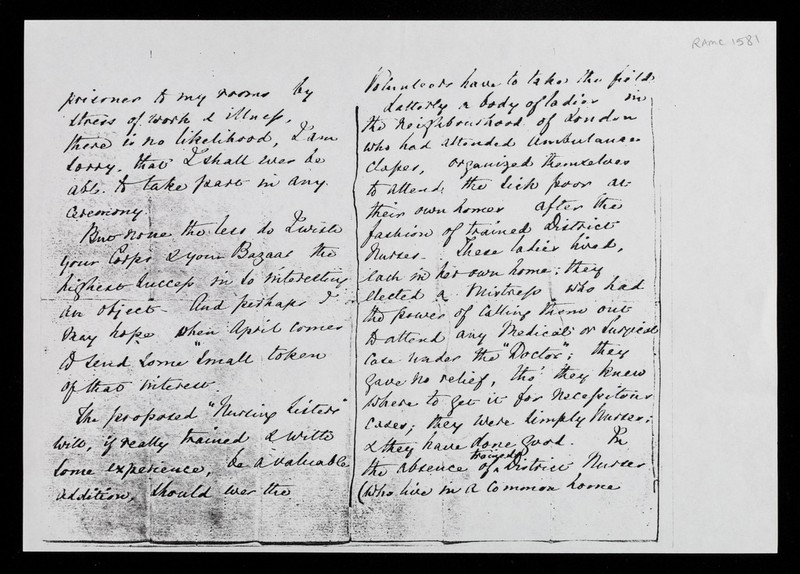 RAMC 1581
prisoner to my rooms by
stress of work & illness,
there is no likelihood, I am
sorry, that I shall ever be
able to take part in any
ceremony.
But none the less do I wish
your Corps & your Bazaar the
highest success in so interesting
an object - And perhaps I
may hope when April comes
to send some "small token
of that interest
The proposed "Nursing Sisters"
will, if really trained & with
some experience, be a valuable
addition, should ever the
Volunteers have to take the field.
Latterly a body of ladies in
the neighbourhood of London
who had attended Ambulance
Classes, organized themselves
to attend the Sick poor at
their own homes after the
fashion of trained District
Nurses. These ladies lived,
each in her own home; they
elected a Mistress who had
the power of calling them out
to attend any Medical or Surgical
Case under the "Doctor"; they
gave no relief, tho' they knew
where to get it for necessitous
cases; they were simply Nurses;
& they have done good. In
the absence of trained District Nurses
(who live in a common home